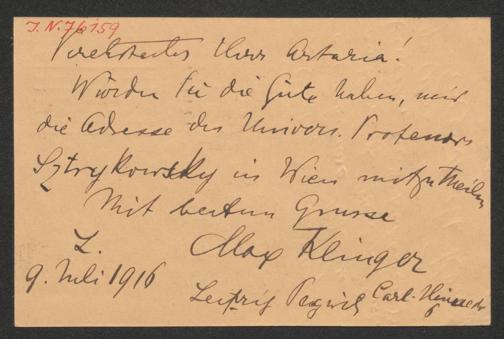 J.N. 76159
Verehrtester Herr Artaria!
Würden Sie die Güte haben, mir
die Adresse des Univers. Professors
Sztrykowsky in Wien mitzutheilen
Mit bestem Grusse
L. Max Klinger
9. Juli 1916
Leipzig Carl-
6